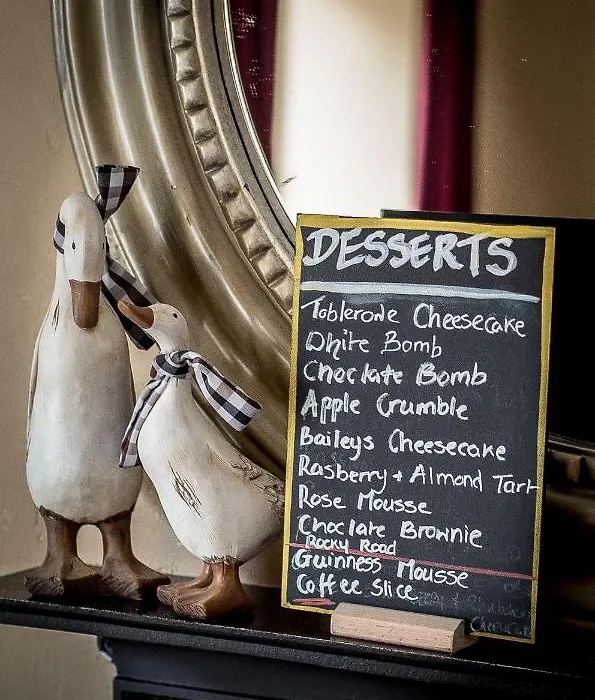 DESSERTS
Toblerode Cheesecake
White Bomb
Choclate Bomb
Apple Crumble
Baileys Cheesecake
Rasberry + Almond Tart
Rose Mousse
Choclate Brownie
Rocky Road
Guinness Mousse
Coffee Slice